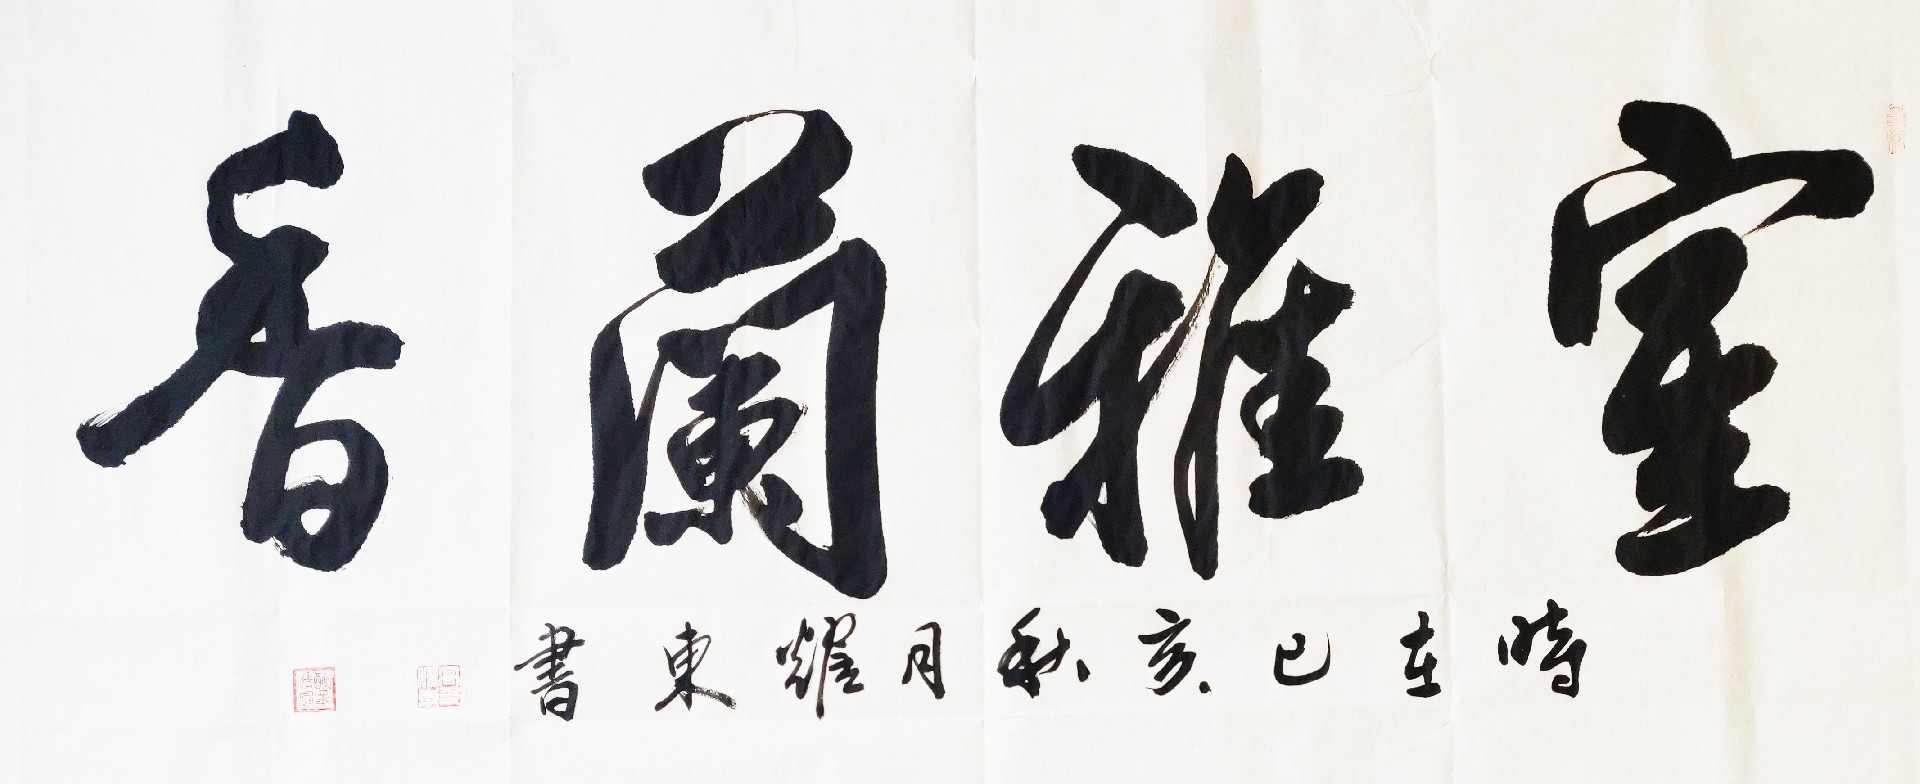 室雅蘭香
時在己亥秋月耀東書